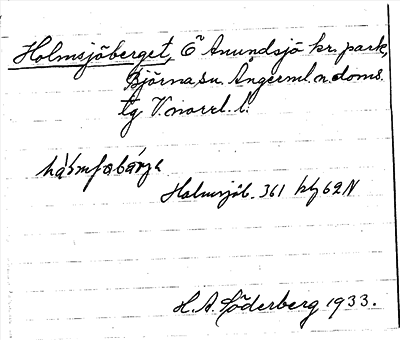 Holmsjöberget, Ö Anundsjö kr. park,
Björna sn. Ångerml. n. doms.
tg V.norrl. l.
hå̀ɷmʃobæ̀rjə
Holmsjöb. 361 hbg 62N
H. A. Söderberg 1933.